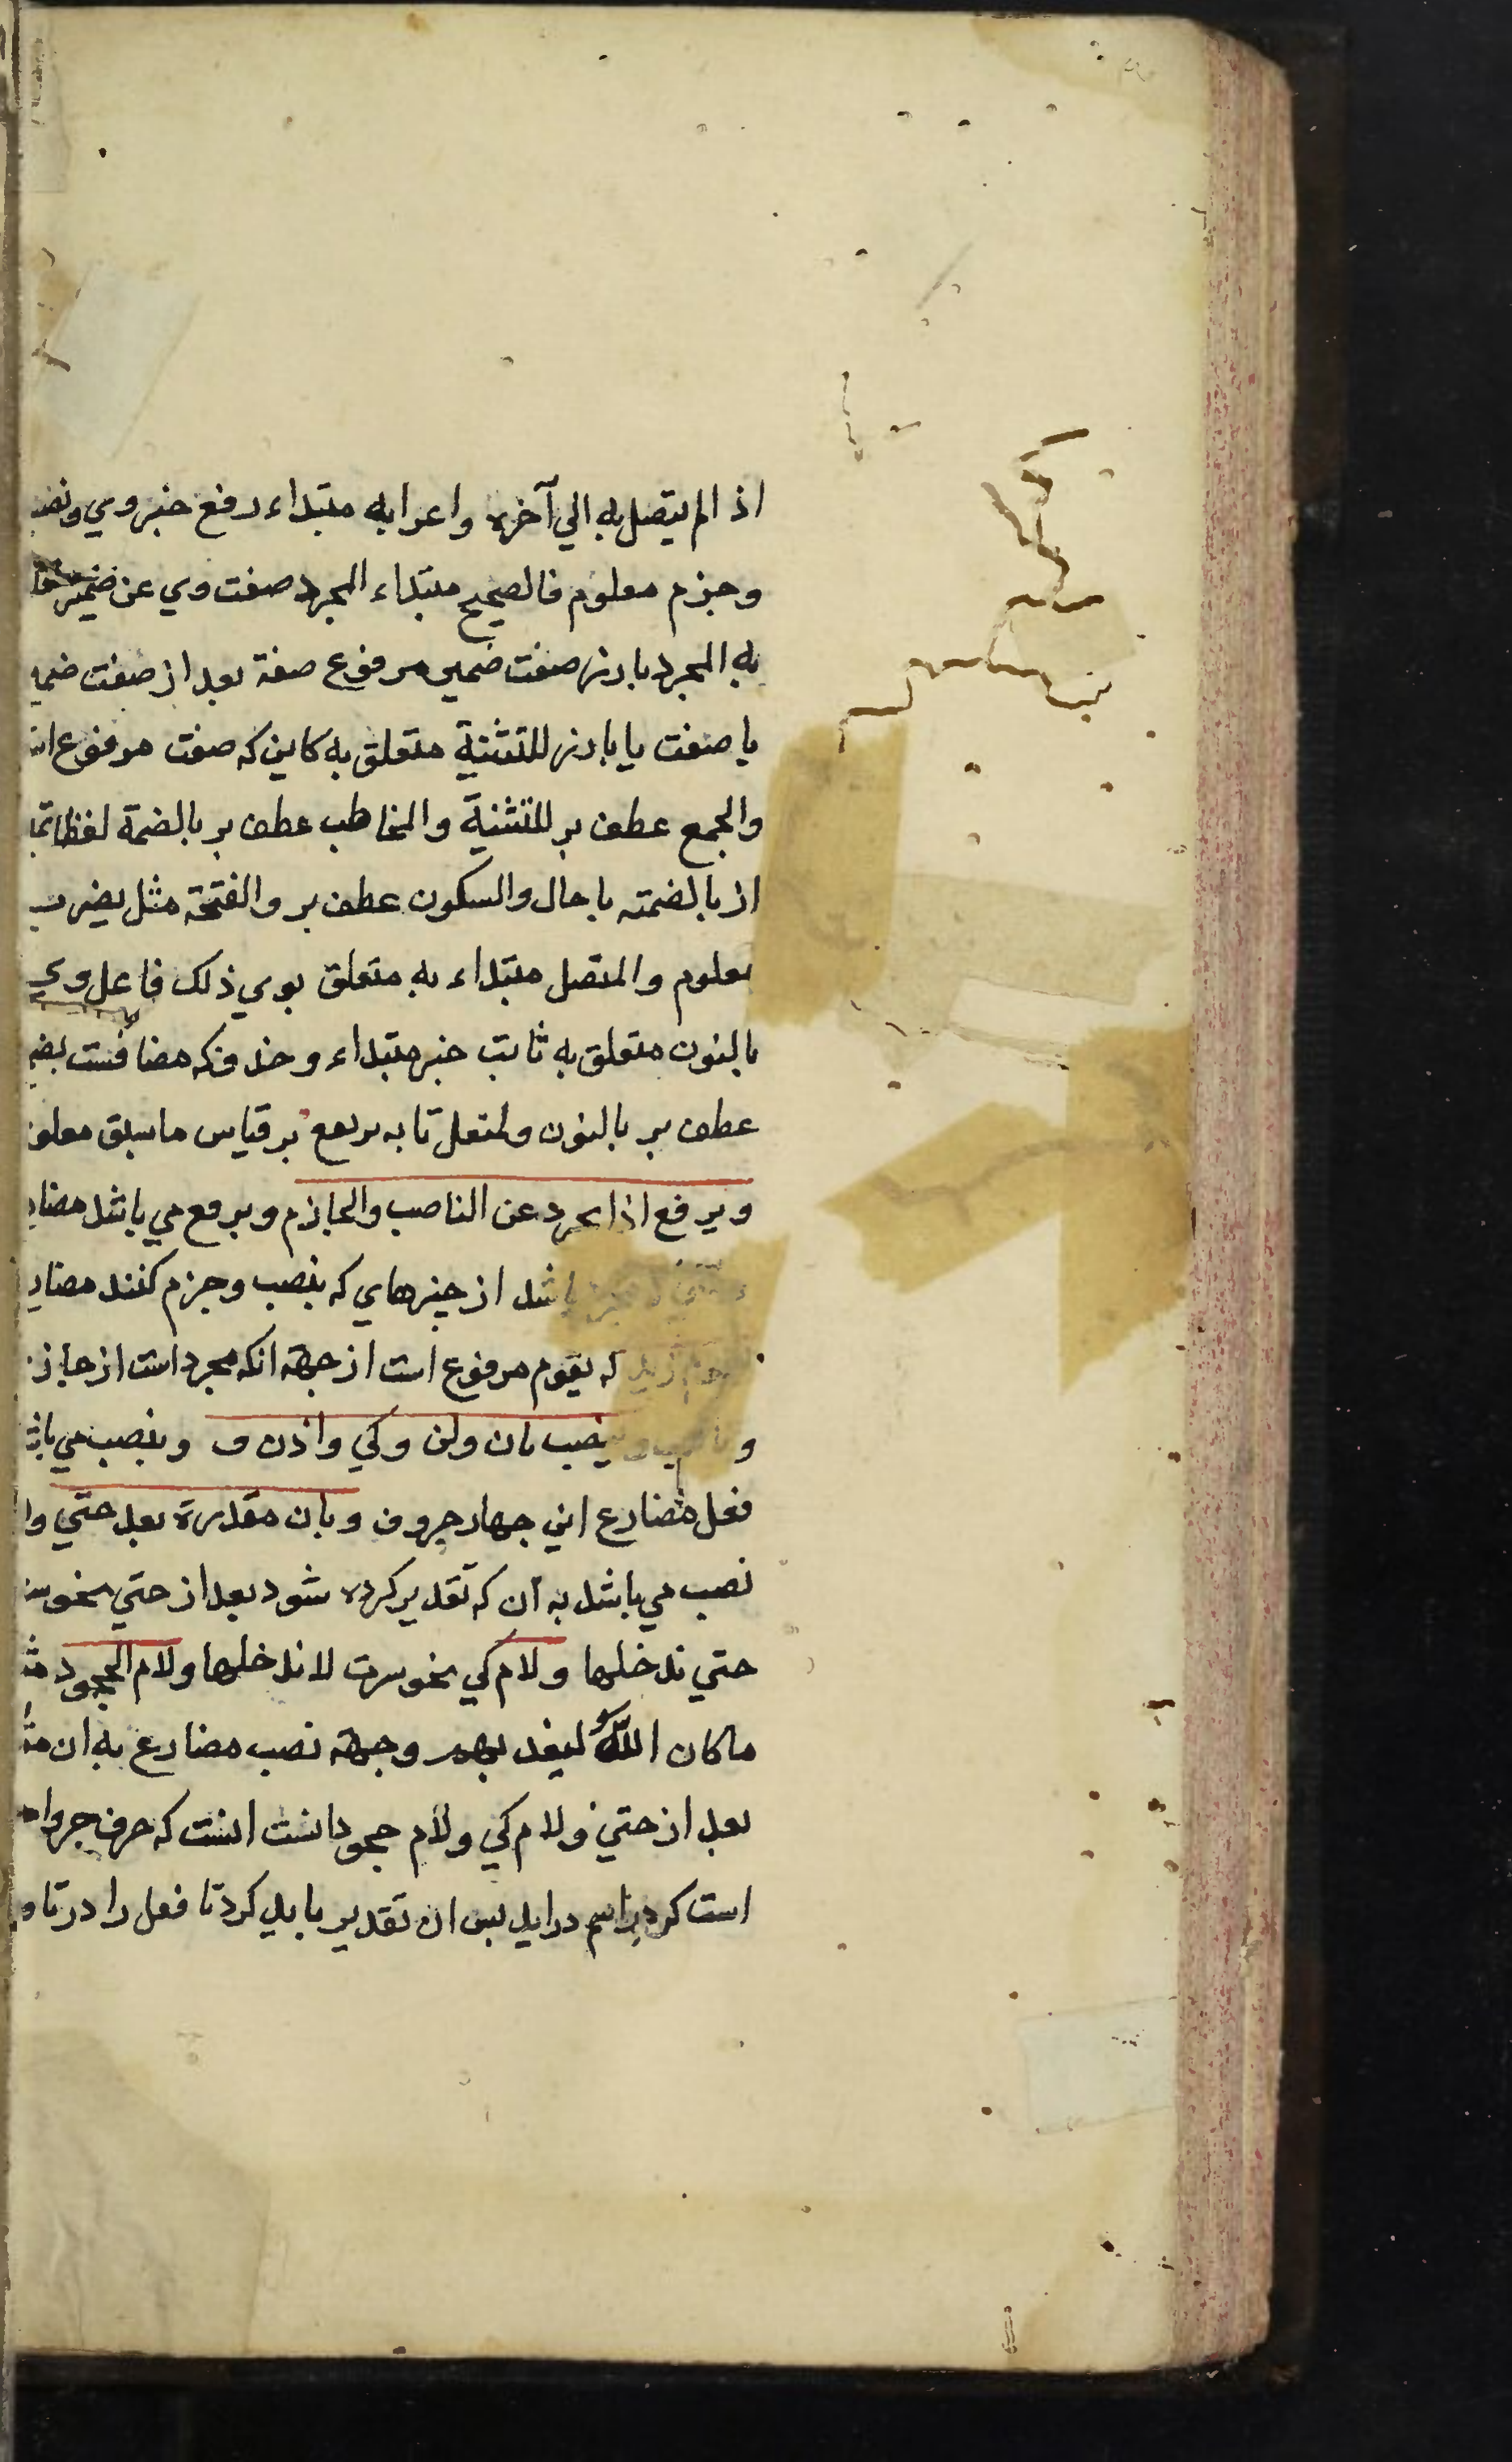 اذا لم يتصل به الي آخره واعرابه مبتداء رفع خبر وي ونصب
وجزم معلوم فالصحيح مبتداء المجرد صفت وي عن ضمير
به المجرد بارز صفت ضمير مرفوع صفة بعد از صفت ضمير
يا صفت يا بارز للتثنية متعلق به كاين كه صفت مرفوع است
والجمع عطف بر للتثنية والمخاطب عطف بر بالضمة لفظا تميز
از بالضمته يا حال والسكون عطف بر والفتحة مثل يضرب
معلوم والمتصل مبتداء به متعلق بوي ذلك فاعل وي
بالنون متعلق به ثابت خبر مبتداء وحذف كه مضافست
عطف بر بالنون ولتعل تا به يرفع بر قياس ما سبق معلوم
ويرفع اذا تجرد عن الناصب والجازم ويرفع مي باشد مضارع
باشد از چيزهاي كه بنصب وجزم كنند مضارع
زيد كه يقوم مرفوع است از جهة انكه مجرد است از جازم
و ينصب بان ولن وكي واذن ف وبنصب مي باشد
فعل مضارع اين چهار حروف وبان مقدرة بعد حتي ولام
نصب مي باشد به آن كه تقدير كرده شود بعد از حتي نحو سرت
حتي ندخلها ولام كي نحو سرت لاندخلها ولام الجحود مثل
ما كان الله ليعذبهم وجهة نصب مضارع به ان مقدرة
بعد از حتي ولام كي ولام جحود انست اينست كه حرف جر
است كه در اسم درايد بس ان تقدير بايد كرد تا فعل را در تا